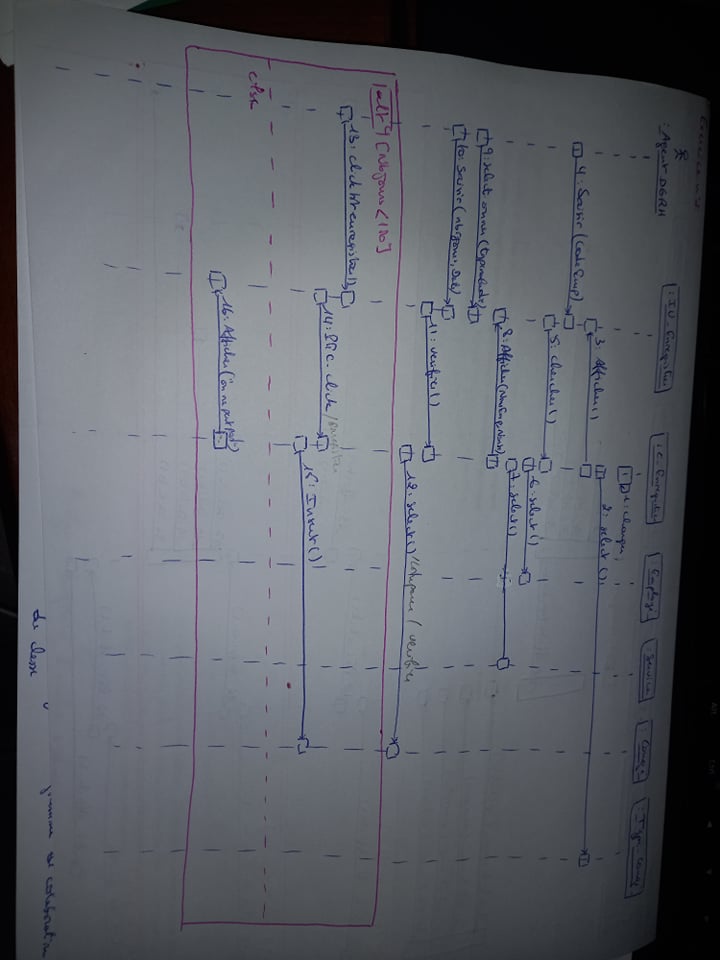 Exercice n°
: Agent DGRH
: IU_Enregistrer
: C_Enregistrer
: Employé
: Service
: Congé
: Type_Congé
1: charger
2: select()
3: Afficher()
4: Saisir (CodeEmp)
5: chercher()
6: select()
7: select()
8: Afficher(
9: select onner (
10: Saisir (nbjours, Date)
11: verifier()
12: select() / compare / verifier
alt [Nbjours <
13: click bt enregistrer()
14: click / enregistrer
15: Insert()
else
16: Afficher("on ne peut pas")
de classe
de colaboration